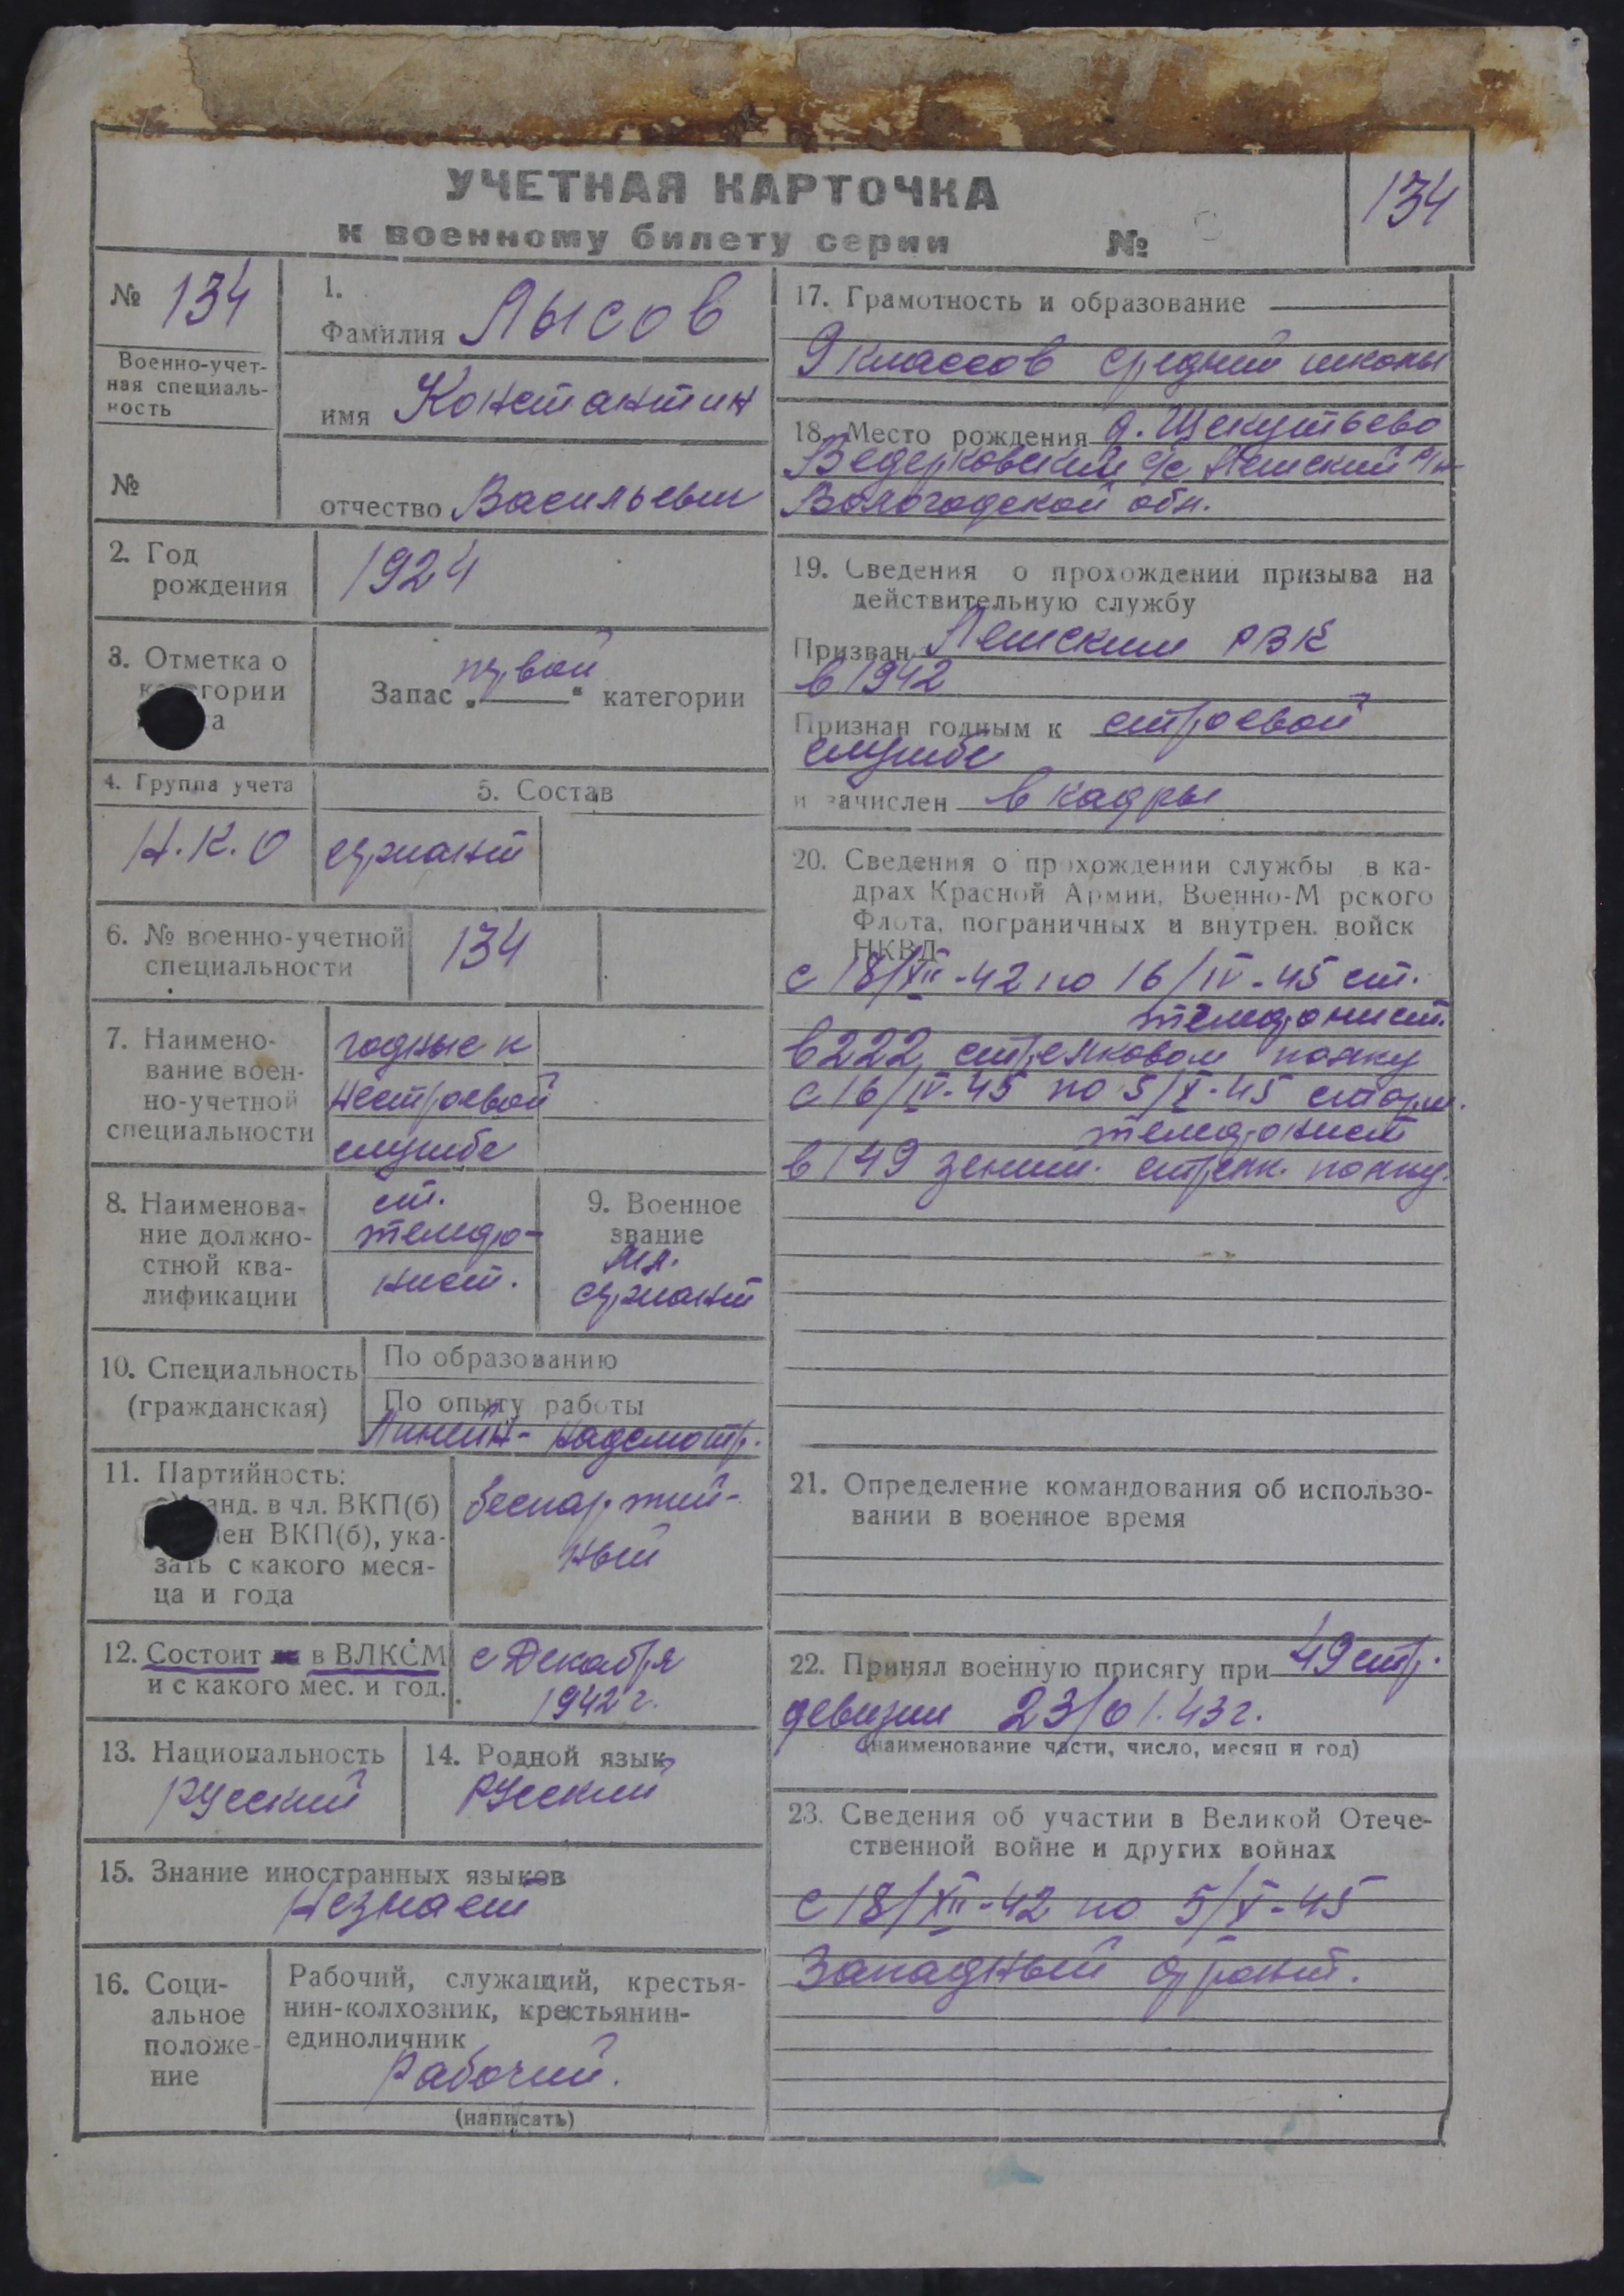 УЧЕТНАЯ КАРТОЧКА
к военному билету серии №
134
№ 134
Военно-учет-
ная специаль-
ность
№
1.
Фамилия Лысов
имя Константин
отчество Васильевич
2. Год
рождения
1924
3. Отметка о
гории
а
Запас „первой“ категории
4. Группа учета
Н.К.О
5. Состав
сержант
6. № военно-учетной
специальности
134
7. Наимено-
вание воен-
но-учетной
специальности
годные к
нестроевой
службе
8. Наименова-
ние должно-
стной ква-
лификации
ст.
телефо-
нист.
9. Военное
звание
мл.
сержант
10. Специальность
(гражданская)
По образованию
По опыту работы
Линейн- надсмотр.
11. Партийность:
анд. в чл. ВКП(б)
лен ВКП(б), ука-
зать с какого меся-
ца и года
беспартий-
ный
12. Состоит в ВЛКСМ
и с какого мес. и год.
с Декабря
1942 г.
13. Национальность
Русский
14. Родной язык
Русский
15. Знание иностранных языков
Незнает
16. Соци-
альное
положе-
ние
Рабочий, служащий, крестья-
нин-колхозник, крестьянин-
единоличник
Рабочий.
(написать)
17. Грамотность и образование
9 классов средний школы
18. Место рождения д. Щекутьево
Ведерковский с/с Лешский р/н
Вологодской обл.
19. Сведения о прохождении призыва на
действительную службу
Призван Лешским РВК
в 1942
Признан годным к строевой
службе
и зачислен в кадры
20. Сведения о прохождении службы в ка-
драх Красной Армии, Военно-М рского
Флота, пограничных и внутрен. войск
НКВД
с 18/XII-42 по 16/IV-45 ст.
телефонист.
в 222 стрелковом полку
с 16/IV-45 по 5/X-45 старш.
телефонист
в 149 зенит. стрелк. полку.
21. Определение командования об использо-
вании в военное время
22. Принял военную присягу при 49 стр.
девизии 23/01.43 г.
(наименование части, число, месяц и год)
23. Сведения об участии в Великой Отече-
ственной войне и других войнах
с 18/XII-42 по 5/X-45
Западный фронт.